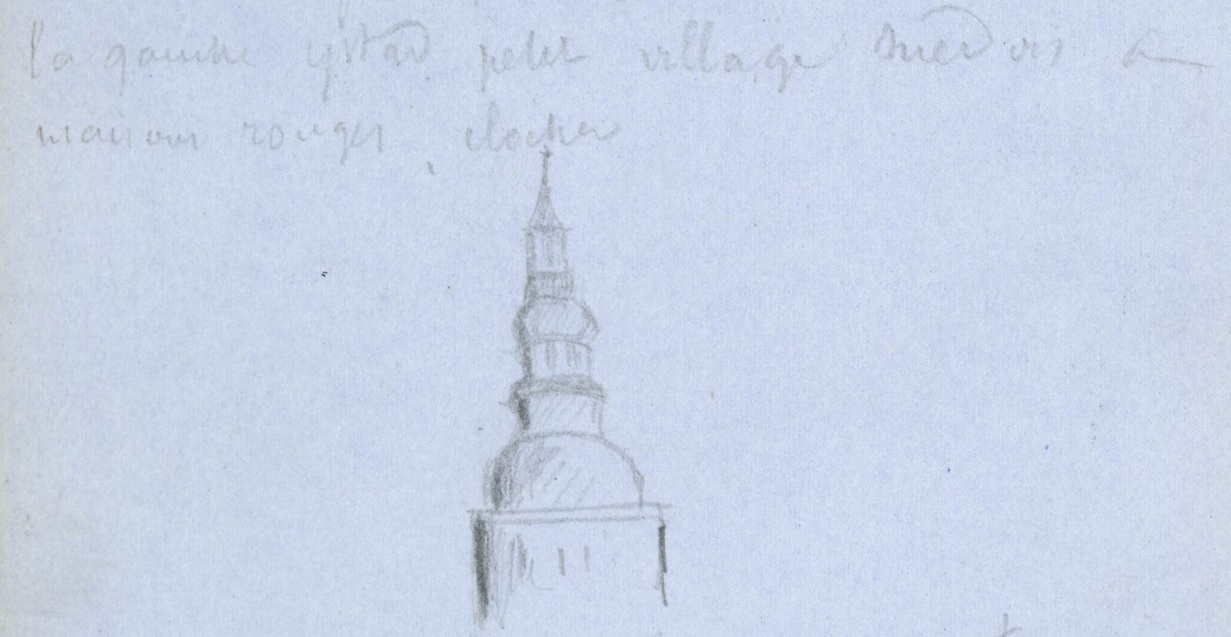 la gauche ystad petit village suedois a
maisons rouges clocher